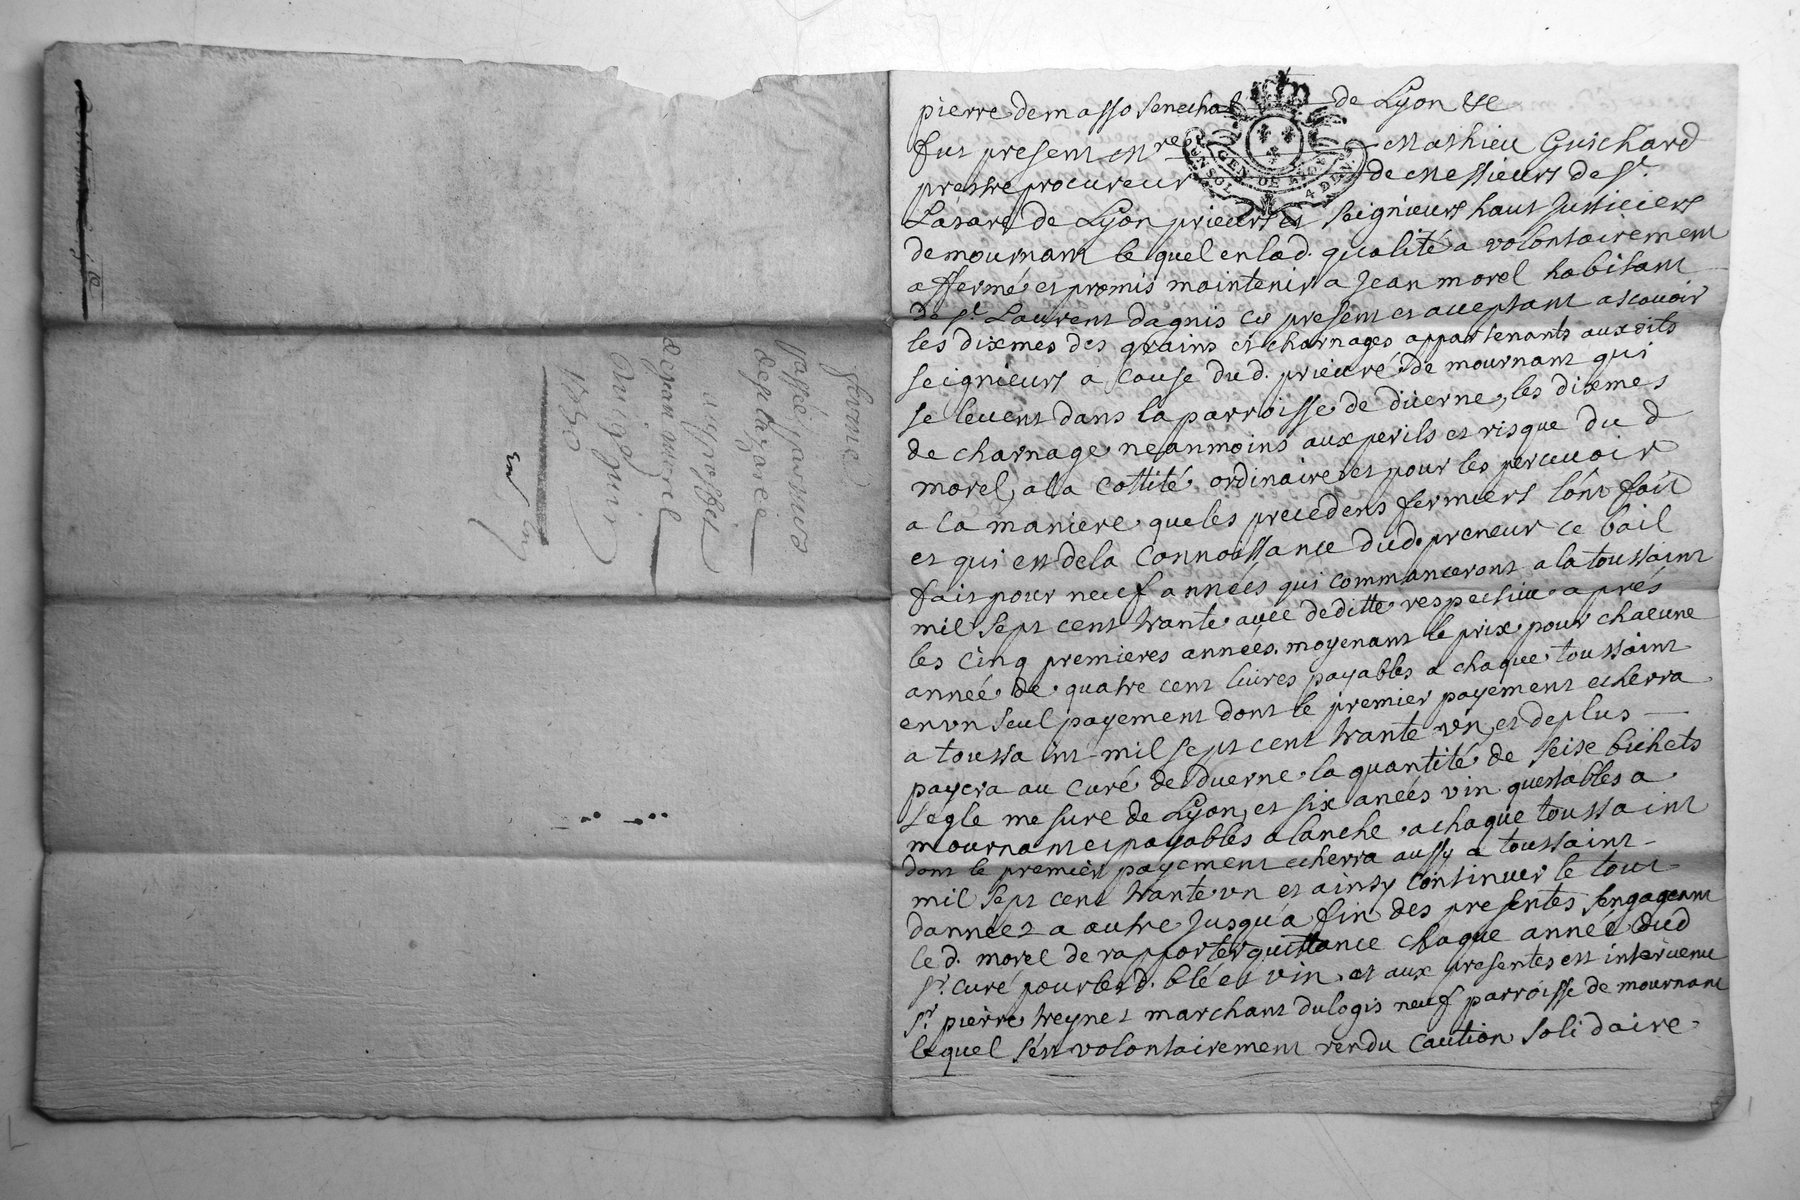 pierre de masso senechal de Lyon &c
fut present mre Mathieu Guichard
prestre procureur de Messieurs de St.
Lasare de Lyon prieurs et seigneurs haut justiciers
de mournant lequel en lad. qualité a volontairement
affermé et promis maintenir a Jean morel habitant
de st Laurent dagnis cy present et acceptant ascavoir
les dixmes des grains et charnages appartenants auxdits
seigneurs a cause dud. prieuré de mournant qui
se levent dans la parroisse de duerne, les dixmes
de charnage neanmoins aux perils et risque du d
morel, a la cottité ordinaire et pour les percevoir
a la maniere que les precedens fermiers lont fait
et qui est de la connoissance dud. preneur ce bail
fait pour neuf années qui commanceront a la toussaint
mil sept cent trante avec deditte respective aprés
les cinq premieres années, moyenant le prix pour chacune
année de quatre cent livres payables a chaque toussaint
en vn seul payement dont le premier payement echerra
a toussaint mil sept cent trante vn, et de plus
payera au curé de duerne la quantité de seise bichets
segle mesure de Lyon, et six aneés vin questables a
mournant et payables a lanche a chaque toussaint
dont le premier payement echerra aussy a toussaint
mil sept cent trante vn et ainsy continuer le tout
danneé a autre jusqua fin des presentes sengageant
le d. morel de rapporter quittance chaque année dud
sr. curé pour led. blé et vin, et aux presentes est intervenu
sr. pierre treynet marchant du logis neuf parroisse de mournant
lequel sest volontairement rendu caution solidaire
ferme
passé par nres
de st lazare
a
de jean morel
1830